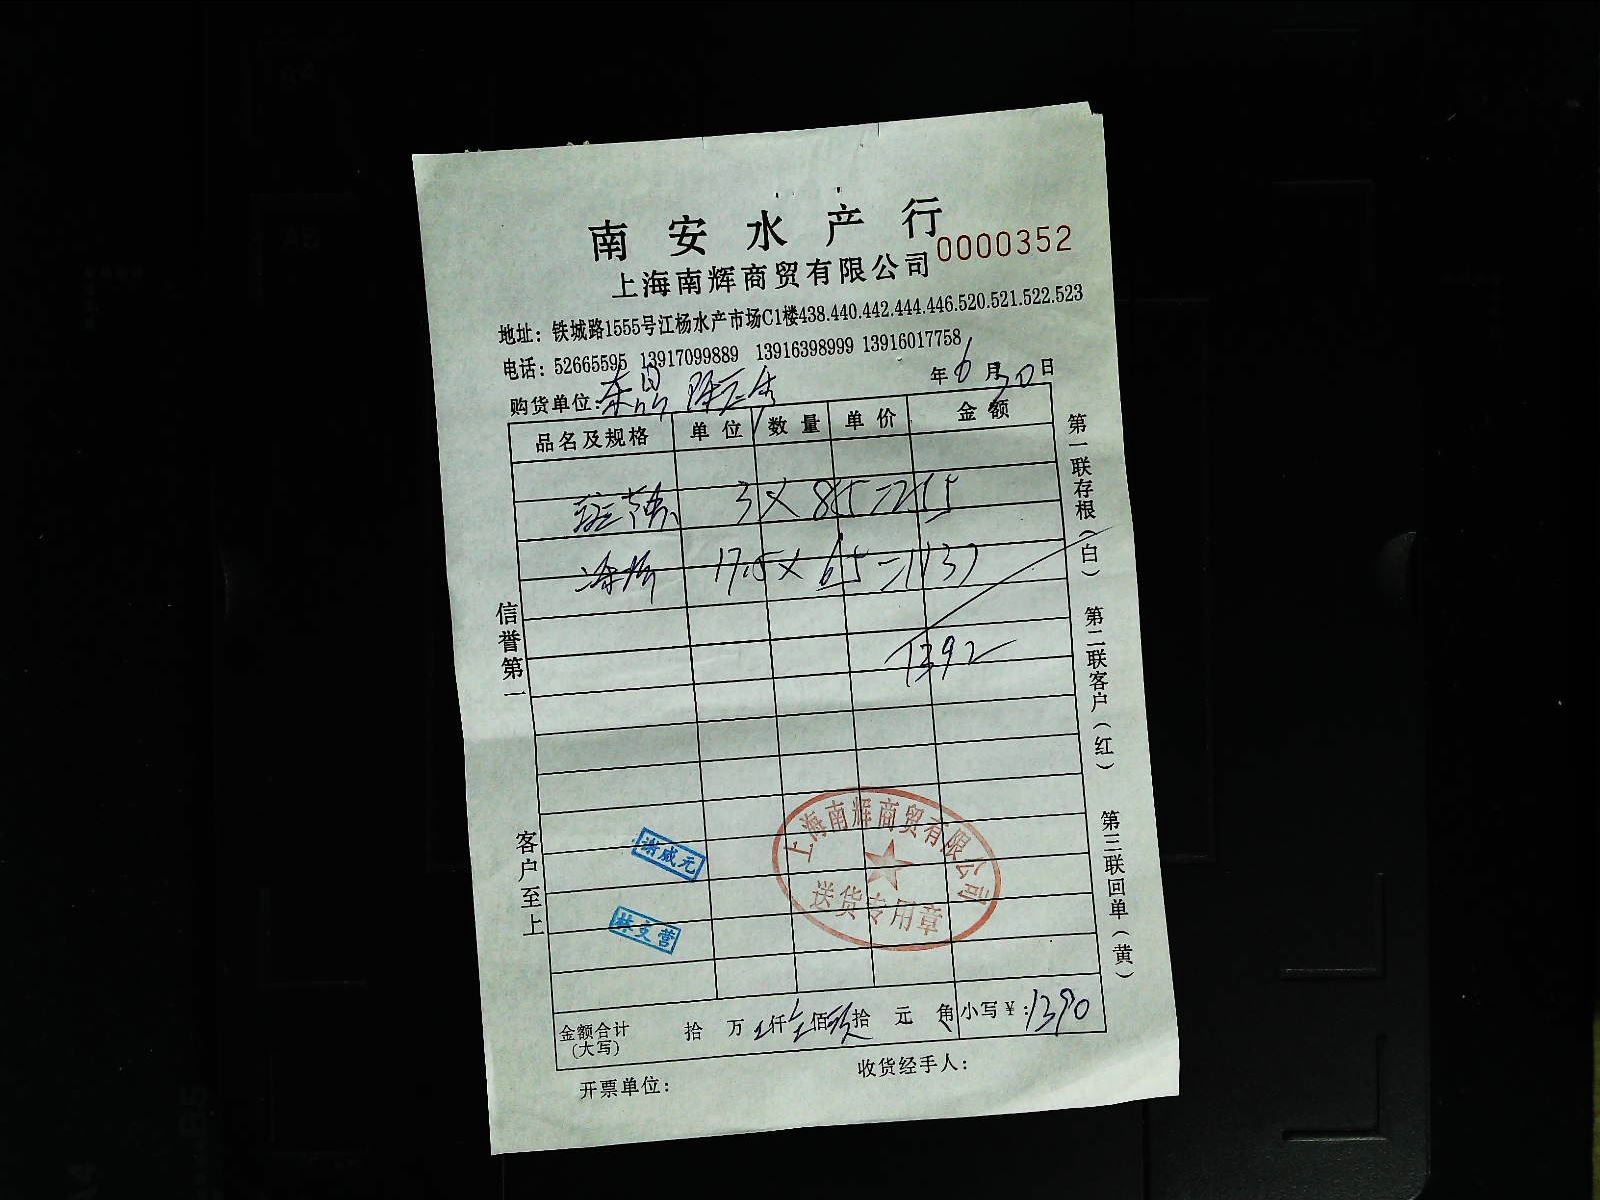 南安水产行
0000352
上海南辉商贸有限公司
地址：铁城路1555号江杨水产市场C1楼438.440.442.444.446.520.521.522.523
电话：52665595 13917099889 13916398999 13916017758
购货单位：
年6月30日
品名及规格 单位 数量 单价 金额
3×85=255
17.5×65=1137
1392
信誉第一
客户至上
第一联存根（白）
第二联客户（红）
第三联回单（黄）
谢咸元
林文营
上海南辉商贸有限公司
送货专用章
金额合计(大写) 拾 万 仟 佰 拾 元 角 小写￥：1390
开票单位：
收货经手人：